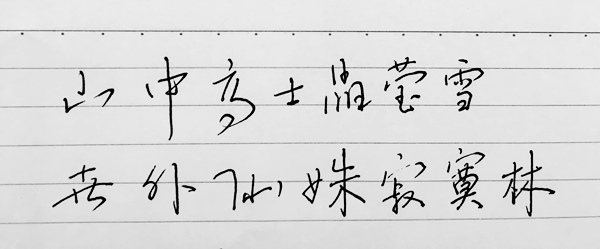 山中高士晶莹雪
世外仙姝寂寞林